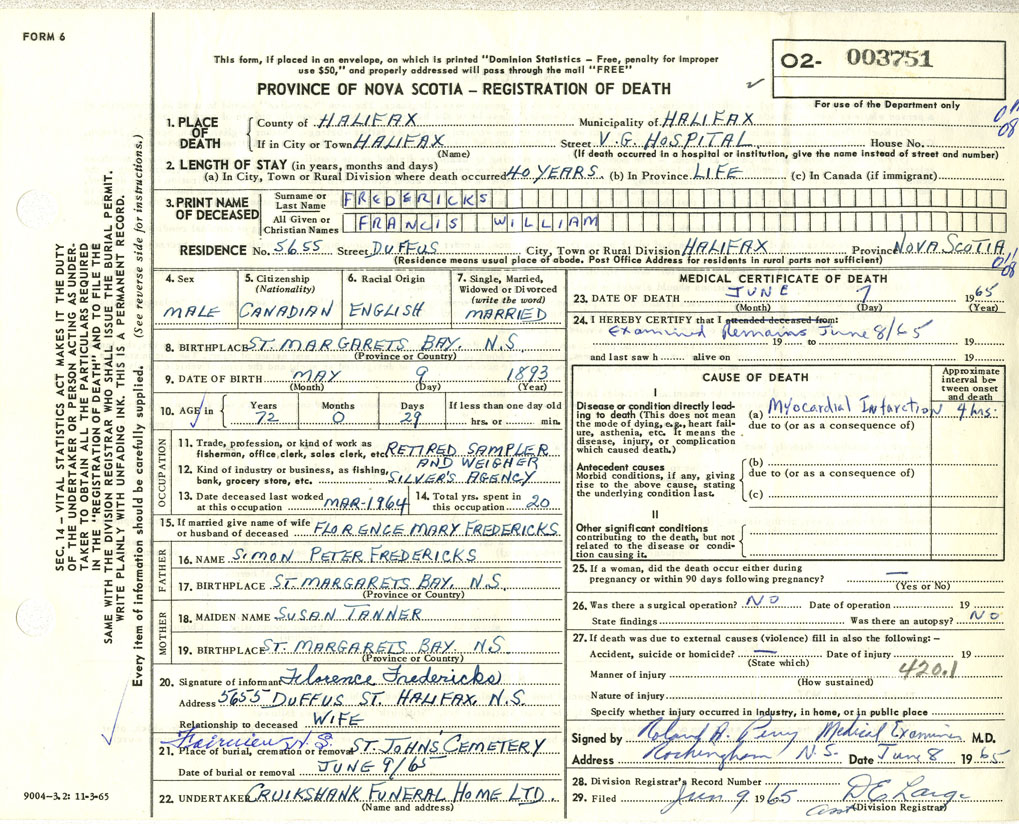 FORM 6
This form, if placed in an envelope, on which is printed "Dominion Statistics – Free, penalty for improper
use $50," and properly addressed will pass through the mail "FREE"
O2- 003751
PROVINCE OF NOVA SCOTIA – REGISTRATION OF DEATH
For use of the Department only
1. PLACE OF DEATH
County of HALIFAX Municipality of HALIFAX
If in City or Town HALIFAX Street V.G. HOSPITAL House No.
(Name) (If death occurred in a hospital or institution, give the name instead of street and number)
2. LENGTH OF STAY (in years, months and days)
(a) In City, Town or Rural Division where death occurred 40 YEARS. (b) In Province LIFE (c) In Canada (if immigrant)
3. PRINT NAME OF DECEASED
Surname or Last Name FREDERICKS
All Given or Christian Names FRANCIS WILLIAM
RESIDENCE No. 5655 Street DUFFUS City, Town or Rural Division HALIFAX Province NOVA SCOTIA
(Residence means usual place of abode. Post Office Address for residents in rural parts not sufficient)
4. Sex
MALE
5. Citizenship
(Nationality)
CANADIAN
6. Racial Origin
ENGLISH
7. Single, Married,
Widowed or Divorced
(write the word)
MARRIED
8. BIRTHPLACE ST. MARGARETS BAY. N.S.
(Province or Country)
9. DATE OF BIRTH MAY 9 1893
(Month) (Day) (Year)
10. AGE in Years 72 Months 0 Days 29 If less than one day old
hrs. or min.
OCCUPATION
11. Trade, profession, or kind of work as
fisherman, office clerk, sales clerk, etc. RETIRED SAMPLER
AND WEIGHER
12. Kind of industry or business, as fishing,
bank, grocery store, etc. SILVER'S AGENCY
13. Date deceased last worked
at this occupation MAR-1964
14. Total yrs. spent in
this occupation 20
15. If married give name of wife
or husband of deceased FLORENCE MARY FREDERICKS
FATHER
16. NAME SIMON PETER FREDERICKS
17. BIRTHPLACE ST. MARGARETS BAY. N.S.
(Province or Country)
MOTHER
18. MAIDEN NAME SUSAN TANNER
19. BIRTHPLACE ST. MARGARETS BAY NS
(Province or Country)
20. Signature of informant Florence Fredericks
Address 5655 DUFFUS ST. HALIFAX N.S.
Relationship to deceased WIFE
Fairview N.S.
21. Place of burial, cremation or removal ST. JOHNS' CEMETERY
Date of burial or removal JUNE 9/65
22. UNDERTAKER CRUIKSHANK FUNERAL HOME LTD.
(Name and address)
MEDICAL CERTIFICATE OF DEATH
23. DATE OF DEATH JUNE 7 1965
(Month) (Day) (Year)
24. I HEREBY CERTIFY that I attended deceased from:
Examined Remains June 8/65
19 to 19
and last saw h alive on 19
CAUSE OF DEATH
Approximate
interval be-
tween onset
and death
I
Disease or condition directly lead-
ing to death (This does not mean
the mode of dying, e.g., heart fail-
ure, asthenia, etc. It means the
disease, injury, or complication
which caused death.)
(a) Myocardial Infarction 4 hrs.
due to (or as a consequence of)
Antecedent causes
Morbid conditions, if any, giving
rise to the above cause, stating
the underlying condition last.
(b)
due to (or as a consequence of)
(c)
II
Other significant conditions
contributing to the death, but not
related to the disease or condi-
tion causing it.
25. If a woman, did the death occur either during
pregnancy or within 90 days following pregnancy? —
(Yes or No)
26. Was there a surgical operation? NO Date of operation 19
State findings Was there an autopsy? NO
27. If death was due to external causes (violence) fill in also the following:–
Accident, suicide or homicide? — Date of injury 19
(State which)
Manner of injury 420.1
(How sustained)
Nature of injury
Specify whether injury occurred in industry, in home, or in public place
Signed by Roland A. Perry Medical Examiner M.D.
Address Rockingham N.S. Date June 8 1965
28. Division Registrar's Record Number
29. Filed Jun 9 1965 D E Large
asst (Division Registrar)
SEC. 14 – VITAL STATISTICS ACT MAKES IT THE DUTY
OF THE UNDERTAKER OR PERSON ACTING AS UNDER-
TAKER TO OBTAIN ALL THE PARTICULARS REQUIRED
IN THE "REGISTRATION OF DEATH" AND TO FILE THE
SAME WITH THE DIVISION REGISTRAR WHO SHALL ISSUE THE BURIAL PERMIT.
WRITE PLAINLY WITH UNFADING INK. THIS IS A PERMANENT RECORD.
Every item of information should be carefully supplied. (See reverse side for instructions.)
9004–3.2: 11-3-65